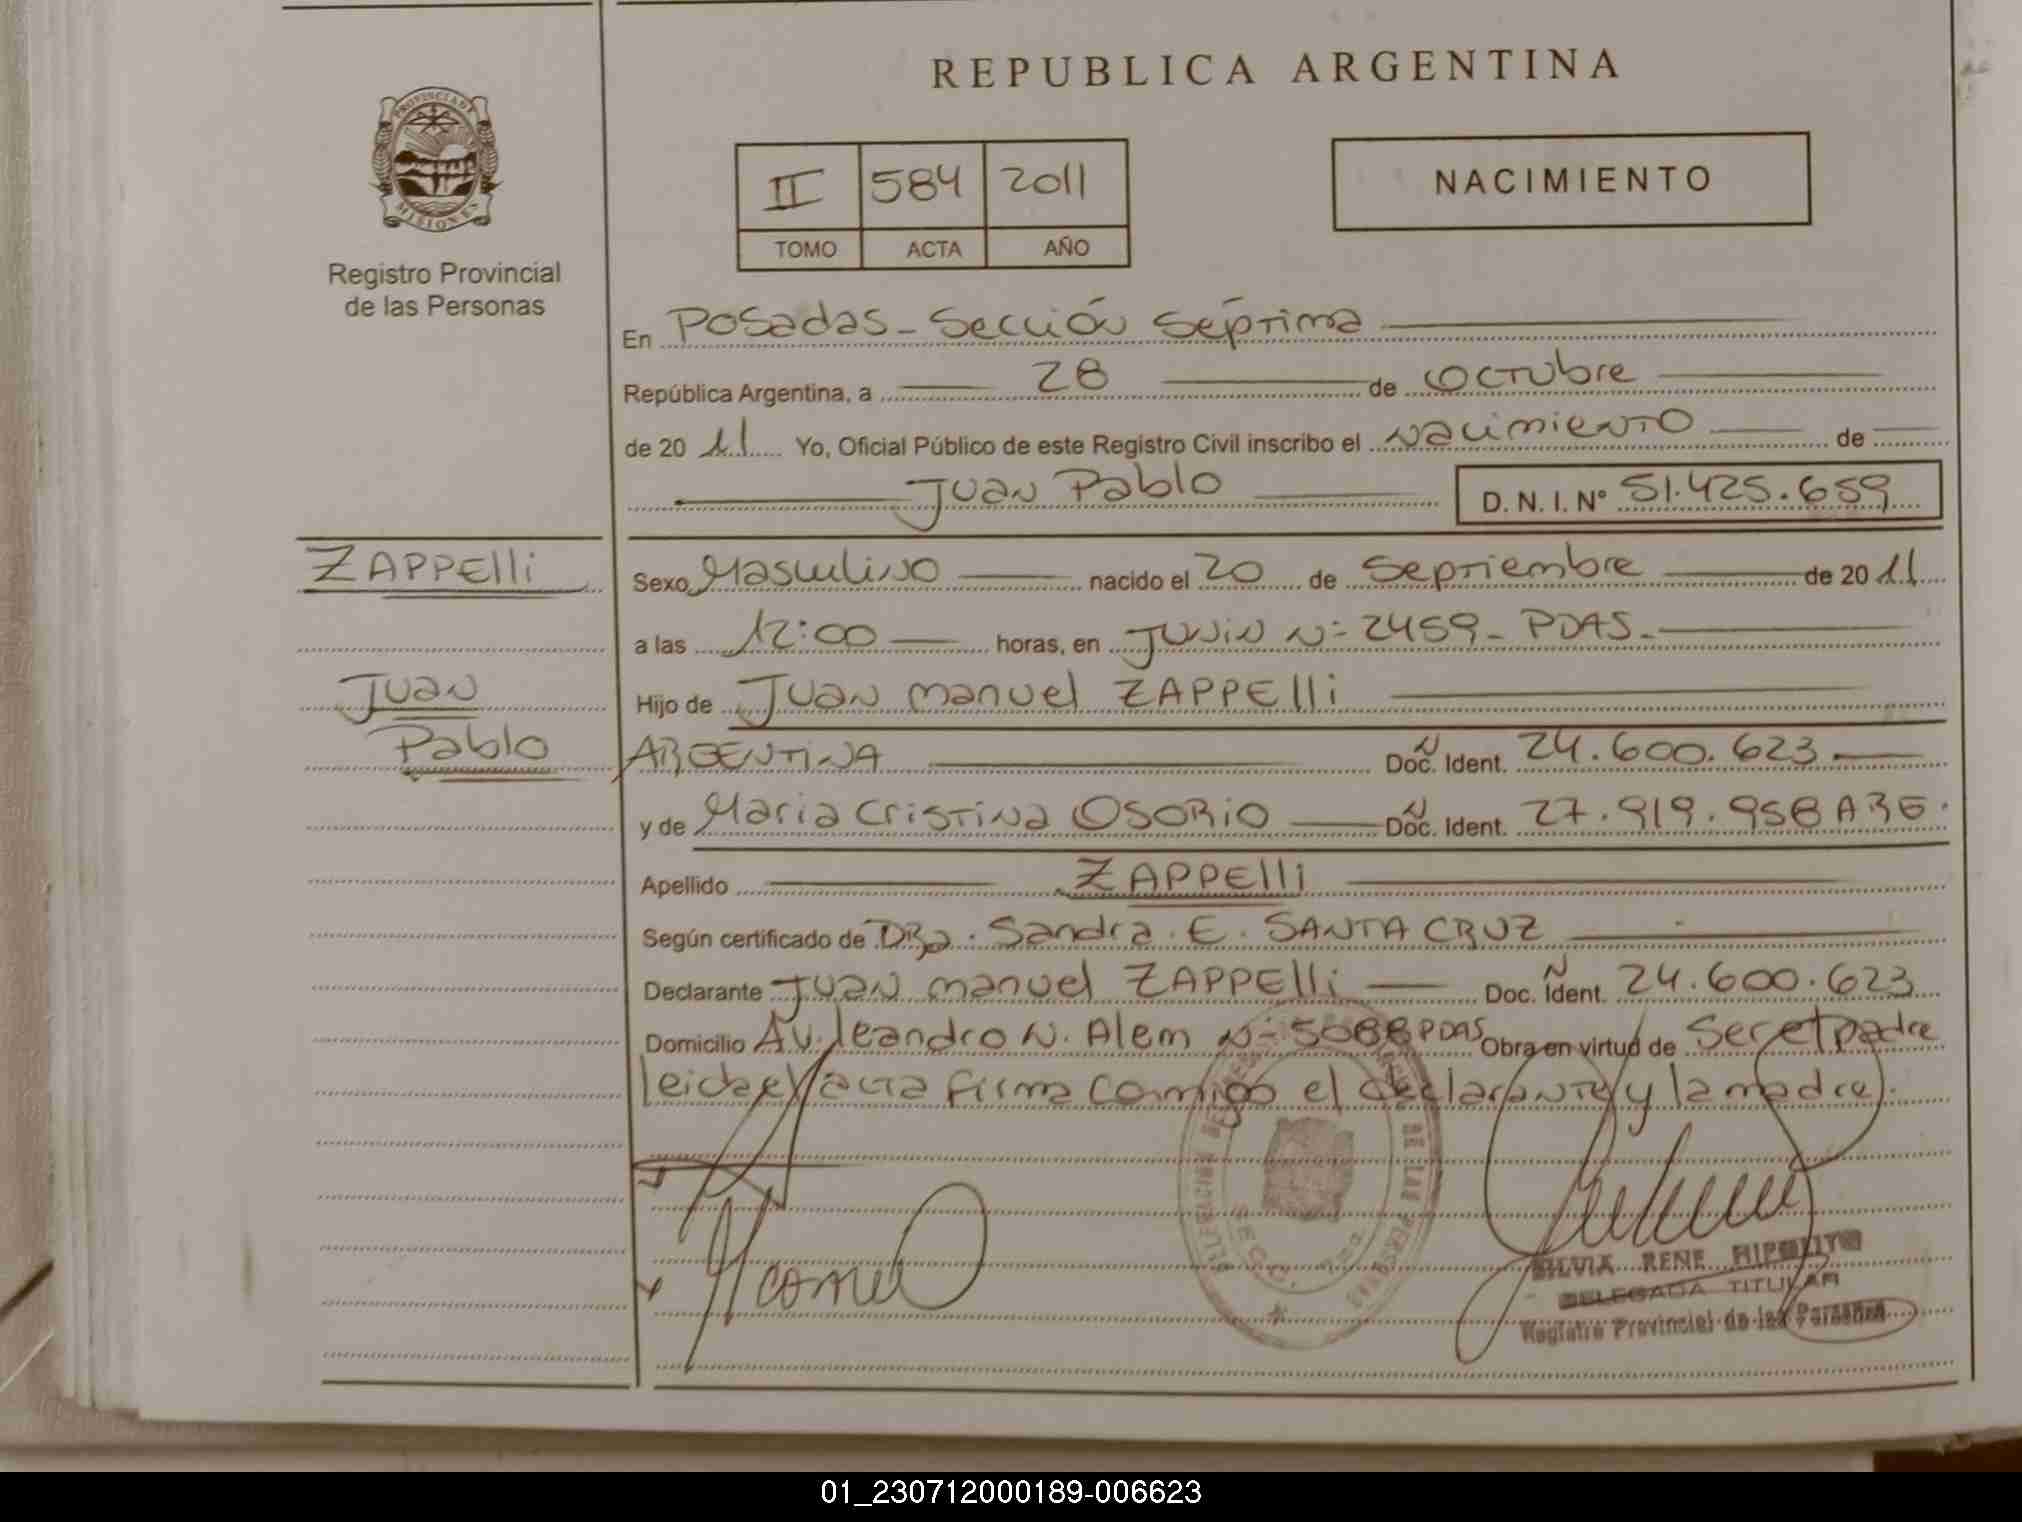 REPUBLICA ARGENTINA
PROVINCIA DE
MISIONES
Registro Provincial
de las Personas
II 584 2011
TOMO ACTA AÑO
NACIMIENTO
En Posadas - Sección Séptima
República Argentina, a 28 de Octubre
de 20 11 Yo, Oficial Público de este Registro Civil inscribo el Nacimiento de
Juan Pablo D. N. I. Nº 51.425.659
ZAPPElli
Juan
Pablo
Sexo Masculino nacido el 20 de Septiembre de 20 11
a las 12:00 horas, en Junin N- 2459 - PDAS.-
Hijo de Juan Manuel ZAPPElli
ARGENTINA Doc. Ident. 24.600.623
y de Maria Cristina OSORIO Doc. Ident. 27.919.958 ARG.
Apellido ZAPPElli
Según certificado de DRa. Sandra E. SANTA CRUZ
Declarante Juan Manuel ZAPPElli Doc. Ident. 24.600.623
Domicilio Av. leandro N. Alem N- 5088 PDAS Obra en virtud de Ser el padre
leida el acta firma conmigo el declarante y la madre.
SECC. 7ma.
DE LAS PERSONAS
SILVIA RENE HIPOLITO
DELEGADA TITULAR
Registro Provincial de las Personas
01_230712000189-006623